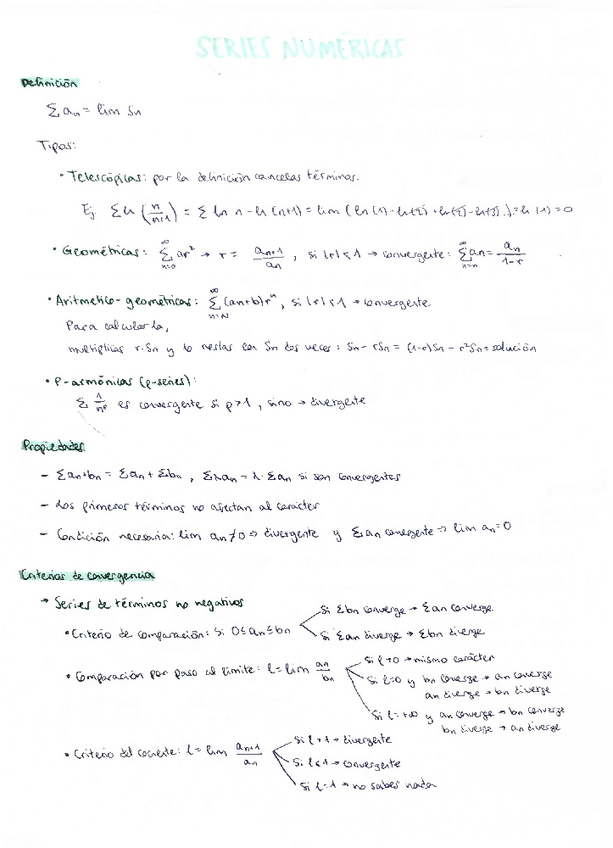 SERIES NUMÉRICAS
Definición
Σ an = lim Sn
Tipos:
• Telescópicas: por la definición cancelas términos.
Ej. Σ ln (n/n+1) = Σ ln n - ln (n+1) = lim (ln(1) - ln(2) + ln(2) - ln(3)...) = ln (1) = 0
• Geométricas: ∞Σn=0 ar² → r = an+1/an , si |r| < 1 → convergente: ∞Σn=n an = an/1-r
• Aritmetico-geométricas: ∞Σn=N (an+b)rⁿ, si |r| < 1 → convergente
Para calcularla,
multiplicas r·Sn y lo restas con Sn dos veces: Sn - rSn = (1-r)Sn - r²Sn = solución
• P-armónicas (p-series):
Σ 1/nᵖ es convergente si p>1, sino → divergente
Propiedades
- Σ an+bn = Σ an + Σ bn , Σ λan = λ·Σ an si son convergentes
- Los primeros términos no afectan al carácter
- Condición necesaria: lim an ≠ 0 => divergente y Σ an convergente => lim an = 0
Criterios de convergencia
→ Series de términos no negativos
• Criterio de comparación: Si 0 ≤ an ≤ bn
Si Σ bn converge → Σ an converge
Si Σ an diverge → Σ bn diverge
• Comparación por paso al límite: l = lim an/bn
Si l ≠ 0 → mismo carácter
Si l=0 y bn converge → an converge
an diverge → bn diverge
Si l = +∞ y an converge → bn converge
bn diverge → an diverge
• Criterio del cociente: l = lim an+1/an
Si l > 1 → divergente
Si l < 1 → convergente
Si l = 1 → no sabes nada